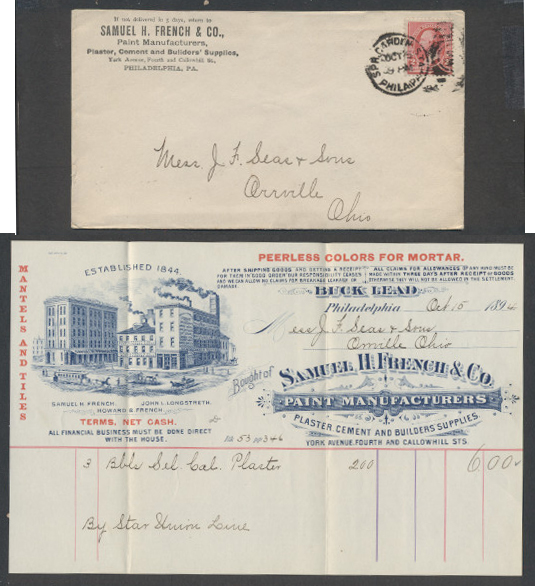 If not delivered in 5 days, return to
SAMUEL H. FRENCH & CO.,
Paint Manufacturers,
Plaster, Cement and Builders' Supplies,
York Avenue, Fourth and Callowhill St.,
PHILADELPHIA, PA.
SPR. GARDEN
OCT
PHILA
Mess J. F. Seas & Sons
Orrville
Ohio
PEERLESS COLORS FOR MORTAR.
MANTELS AND TILES
ESTABLISHED 1844.
AFTER SHIPPING GOODS AND GETTING A RECEIPT
FOR THEM IN GOOD ORDER OUR RESPONSIBILITY CEASES
AND WE CAN ALLOW NO CLAIMS FOR BREAKAGE LEAKAGE OR
DAMAGE.
ALL CLAIMS FOR ALLOWANCES OF ANY KIND MUST BE
MADE WITHIN THREE DAYS AFTER RECEIPT OF GOODS
OTHERWISE THEY WILL NOT BE ALLOWED IN THE SETTLEMENT.
BUCK LEAD
Philadelphia Oct 15 1894
Mess J. F. Seas & Sons,
Orrville Ohio
Bought of SAMUEL H. FRENCH & CO.
PAINT MANUFACTURERS
PLASTER, CEMENT AND BUILDERS' SUPPLIES.
YORK AVENUE, FOURTH AND CALLOWHILL STS
SAMUEL H. FRENCH. JOHN L. LONGSTRETH.
HOWARD B. FRENCH.
TERMS, NET CASH.
ALL FINANCIAL BUSINESS MUST BE DONE DIRECT
WITH THE HOUSE.
53 346
3 Bbls Sel. Cal. Plaster 2.00 6.00
By Star Union Line